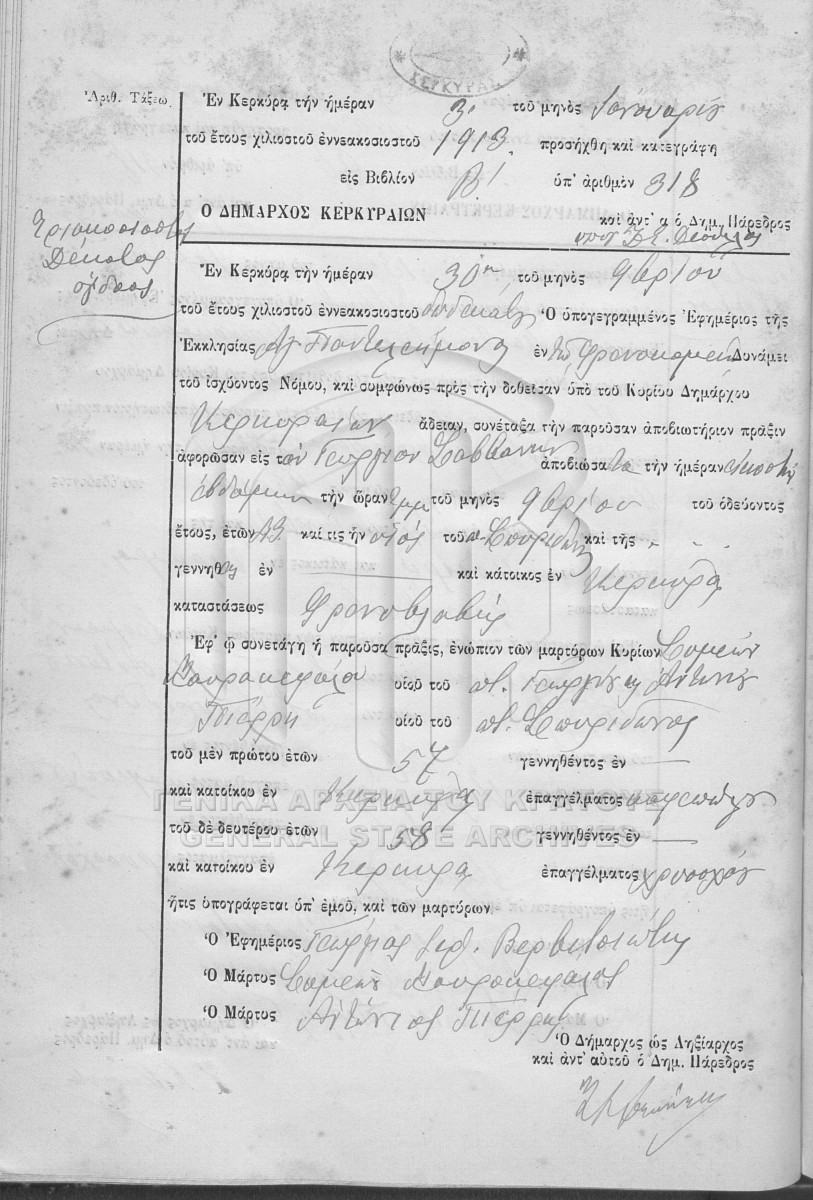 ΚΕΡΚΥΡΑΣ
Ἀριθ. Τάξεω
Τριακοσιοστὸς
Δέκατος
ὄγδοος
Ἐν Κερκύρᾳ τὴν ἡμέραν 3 τοῦ μηνὸς Ἰανουαρίου
τοῦ ἔτους χιλιοστοῦ ἐννεακοσιοστοῦ 1913 προσήχθη καὶ κατεγράφη
εἰς Βιβλίον Β΄ ὑπ᾽ ἀριθμὸν 318
Ο ΔΗΜΑΡΧΟΣ ΚΕΡΚΥΡΑΙΩΝ καὶ ἀντ᾽ α ὁ Δημ. Πάρεδρος
Ἐν Κερκύρᾳ τὴν ἡμέραν 30ην τοῦ μηνὸς 9βρίου
τοῦ ἔτους χιλιοστοῦ ἐννεακοσιοστοῦ δωδεκάτου Ὁ ὑπογεγραμμένος Ἐφημέριος τῆς
Ἐκκλησίας Ἁγ Παντελεήμονος ἐν τῷ Φρενοκομείῳ Δυνάμει
τοῦ ἰσχύοντος Νόμου, καὶ συμφώνως πρὸς τὴν δοθεῖσαν ὑπὸ τοῦ Κυρίου Δημάρχου
Κερκυραίων ἄδειαν, συνέταξα τὴν παροῦσαν ἀποβιωτήριον πρᾶξιν
ἀφορῶσαν εἰς τὸν Γεώργιον ἀποβιώσαντα τὴν ἡμέραν εἰκοστὴν
ἑβδόμην τὴν ὥραν τοῦ μηνὸς 9βρίου τοῦ ὁδεύοντος
ἔτους, ἐτῶν καί τις ἦν υἱὸς τοῦ Σπυρίδων καὶ τῆς
γεννηθεὶς ἐν — καὶ κάτοικος ἐν Κερκύρᾳ
καταστάσεως Φρενοβλαβής
Ἐφ᾽ ᾧ συνετάγη ἡ παροῦσα πρᾶξις, ἐνώπιον τῶν μαρτύρων Κυρίων Συμεὼν
Μαυροκεφάλου υἱοῦ τοῦ Γεωργίου κ Ἀντωνίου
Πιέρρη υἱοῦ τοῦ Σπυρίδωνος
τοῦ μὲν πρώτου ἐτῶν 57 γεννηθέντος ἐν —
καὶ κατοίκου ἐν Κερκύρᾳ ἐπαγγέλματος
ΓΕΝΙΚΑ ΑΡΧΕΙΑ ΤΟΥ ΚΡΑΤΟΥΣ
GENERAL STATE ARCHIVES
τοῦ δὲ δευτέρου ἐτῶν 58 γεννηθέντος ἐν —
καὶ κατοίκου ἐν Κερκύρᾳ ἐπαγγέλματος χρυσοχόου
ἥτις ὑπογράφεται ὑπ᾽ ἐμοῦ, καὶ τῶν μαρτύρων
Ὁ Ἐφημέριος Γεώργιος Βερβιτσιώτης
Ὁ Μάρτυς Συμεὼν Μαυροκέφαλος
Ὁ Μάρτυς Ἀντώνιος Πιέρρης
Ὁ Δήμαρχος ὡς Ληξίαρχος
καὶ ἀντ᾽ αὐτοῦ ὁ Δημ. Πάρεδρος